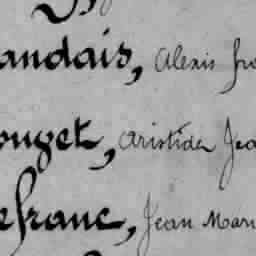 andais, Alexis fra
ouget, Aristide Jea
efranc, Jean Mari